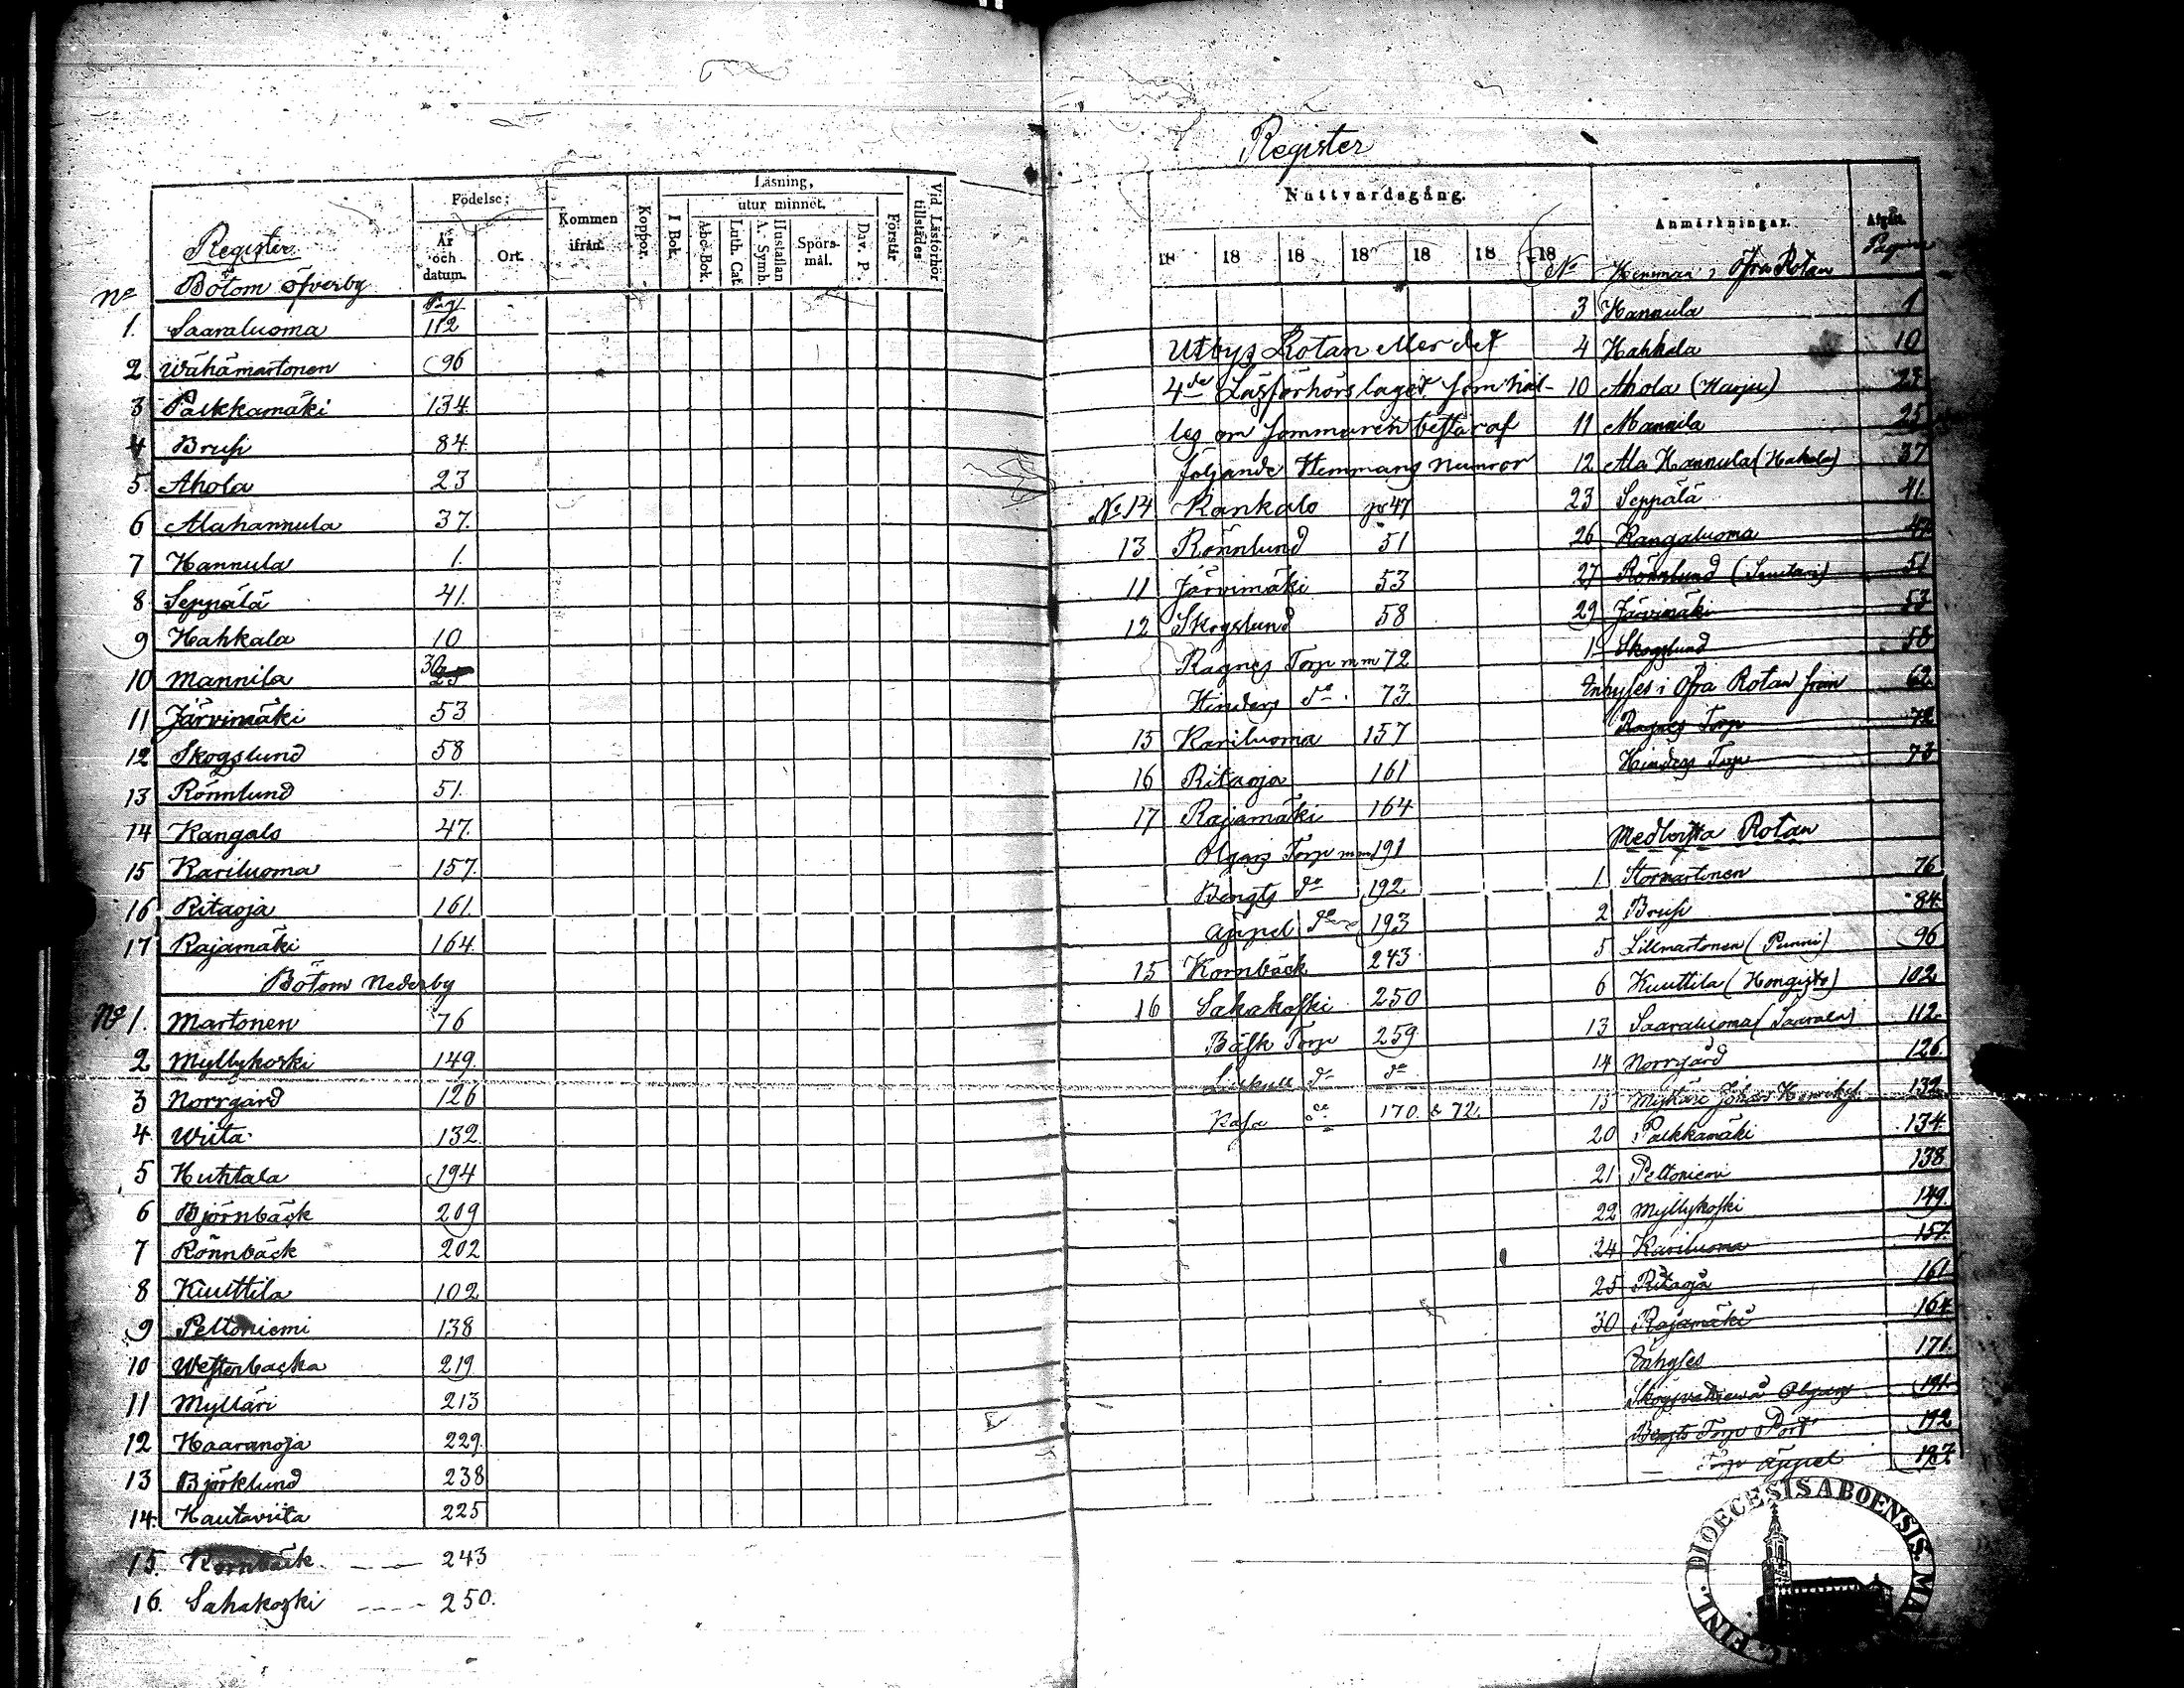 Register
Bötom öfverby
Födelse;
År och datum.
Ort.
Kommen ifrån.
Koppor.
Läsning,
utur minnet.
I Bok.
Abc-Bok.
Luth. Cat.
Hustaflan A. Symb.
Spörsmål.
Dav. P.
Förstår
Vid Läsförhör tillstädes
No
Pag.
1. Saaraluoma 112
2 Wähämartonen 96
3 Palkkamäki 134
4 Brus 84.
5. Ahola 23
6 Alahannula 37.
7 Hannula 1.
8 Seppälä 41.
9 Hahkala 10
10 Mannila 30 25
11 Järvimäki 53
12 Skogslund 58
13 Rönnlund 51.
14 Kangals 47.
15 Kariluoma 157.
16 Ritaoja 161.
17 Rajamäki 164.
Bötom Nederby
No 1. Martonen 76
2 Myllykoski 149.
3 Norrgård 126
4. Wiita 132.
5 Huhtala 194
6 Björnbäck 209
7 Rönnbäck 202
8 Kuuttila 102
9 Peltoniemi 138
10 Westerbacka 219
11 Mylläri 213
12 Haaranoja 229.
13 Björklund 238
14. Hautaviita 225
15. Kornbäck 243
16. Sahakoski 250.
Register
Nattvardsgång.
18 18 18 18 18 18 18
Utbys Rotan eller det
4de Läsförhörslaget som hål-
les om sommaren består af
följande Hemmans numror
No 14 Kankalo p 47
13 Rönnlund 51
11 Järvimäki 53
12 Skogslund 58
Ragnes Torp m m 72
Hinders do 73
15 Kariluoma 157
16 Ritaoja 161
17 Rajamäki 164
Olgas Torp m m 191
Bengts do 192
Äppel do 193
15 Kornbäck 243
16 Sahakoski 250
Bäsk Torp 259
do do
170. & 72.
Anmärkningar.
Pagina
No Hemman i Öfra Rotan
3 Hannula 1
4 Hahkala 10
10 Ahola (Harju) 23
11 Mannila 25
12 Ala Hannula (Hakala) 37
23 Seppälä 41.
26 Kangaluoma 47
27 Rönnlund 51
29 Järvimäki 53
1 Skogslund 58
Inhyses i Öfra Rotan från 62
Ragnes Torp 72
Hinders Torp 73
Medlersta Rotan
1 Stormartonen 76
2 Brus 84.
5 Lillmartonen (Punni) 96
6 Kuuttila (Hongisto) 102
13 Saaraluoma (Saarela) 112.
14 Norrgård 126.
15 Johan Henriks. 132
20 Palkkamäki 134.
21 Peltoniemi 138
22 Myllykoski 149.
24 Kariluoma 157.
25 Ritaoja 161
30 Rajamäki 164.
Inhyses 171.
Olgas 191
Bengts Torp 192
Torp Äppel 197
FINL. DIOECESIS ABOENSIS